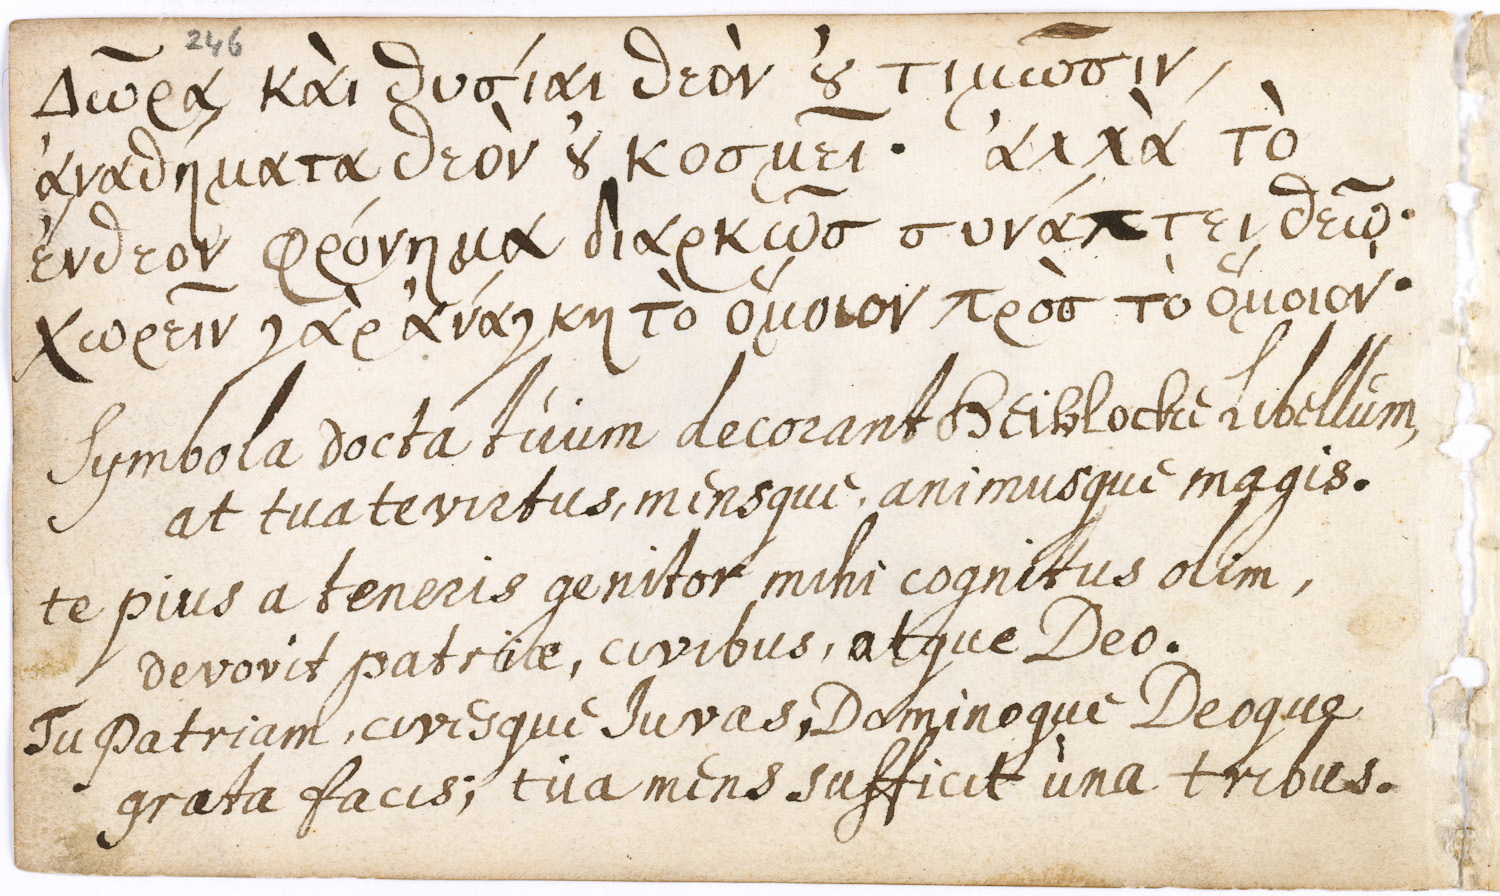 246
Δῶρα κὰι θυσίαι θεὸν ȣ̓ τιμῶσιν,
ἀναθήματα θεὸν ȣ̓ κοσμεῖ. ἀλλὰ τὸ
ἔνθεον φρόνημα διαρκῶσ συνάπτει θεῶ.
χωρεῖν γὰρ ἀνάγκη τὸ ὅμοιον πρὸσ τὸ ὅμοιον.
Symbola docta tuum decorant Heiblocke Libellum,
at tua te virtus, mensque, animusque magis.
te pius a teneris genitor mihi cognitus olim,
devovit patriæ, civibus, atque Deo.
Tu Patriam, civesque Juvas, Dominoque Deoque
grata facis; tua mens sufficit una tribus.